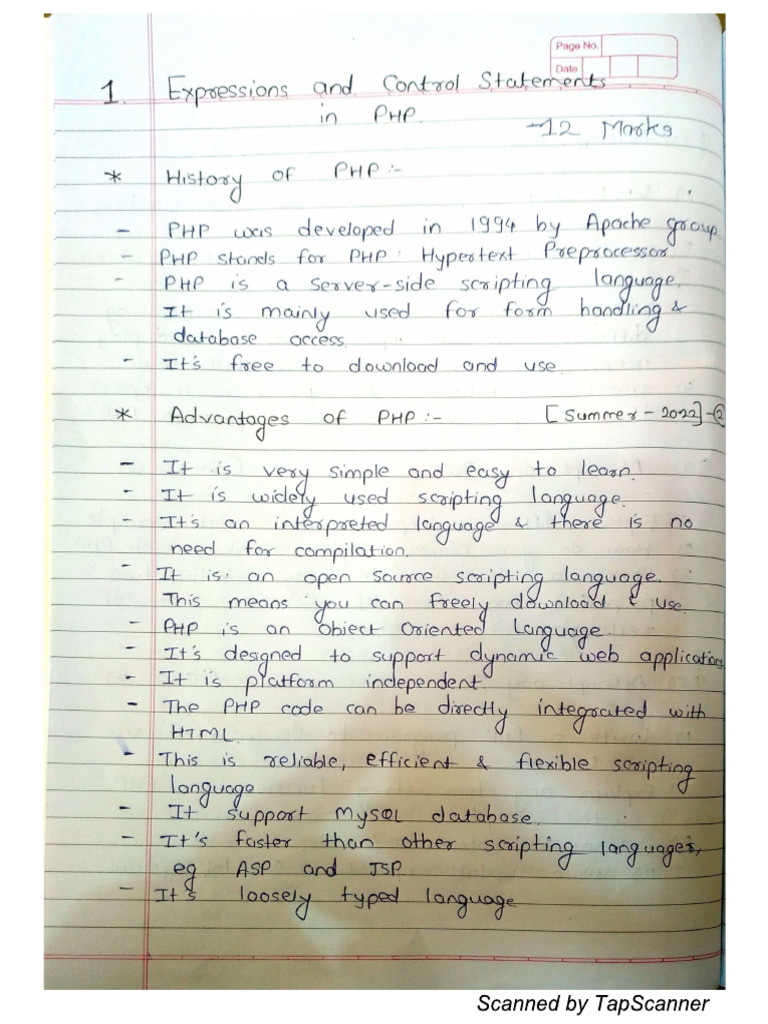 Page No.
Date
1. Expressions and Control Statements
in PHP.
-12 Marks
* History of PHP :-
- PHP was developed in 1994 by Apache group
- PHP stands for PHP: Hypertext Preprocessor
- PHP is a server-side scripting language.
It is mainly used for form handling &
database access.
- It's free to download and use.
* Advantages of PHP :- [Summer - 2022] - (2
- It is very simple and easy to learn.
- It is widely used scripting language.
- It's an interpreted language & there is no
need for compilation.
- It is an open source scripting language.
This means you can freely download & use.
- PHP is an Object Oriented Language
- It's designed to support dynamic web applications
- It is platform independent.
- The PHP code can be directly integrated with
HTML.
- This is reliable, efficient & flexible scripting
language
- It support MySQL database.
- It's faster than other scripting languages,
eg ASP and JSP
- It's loosely typed language
Scanned by TapScanner